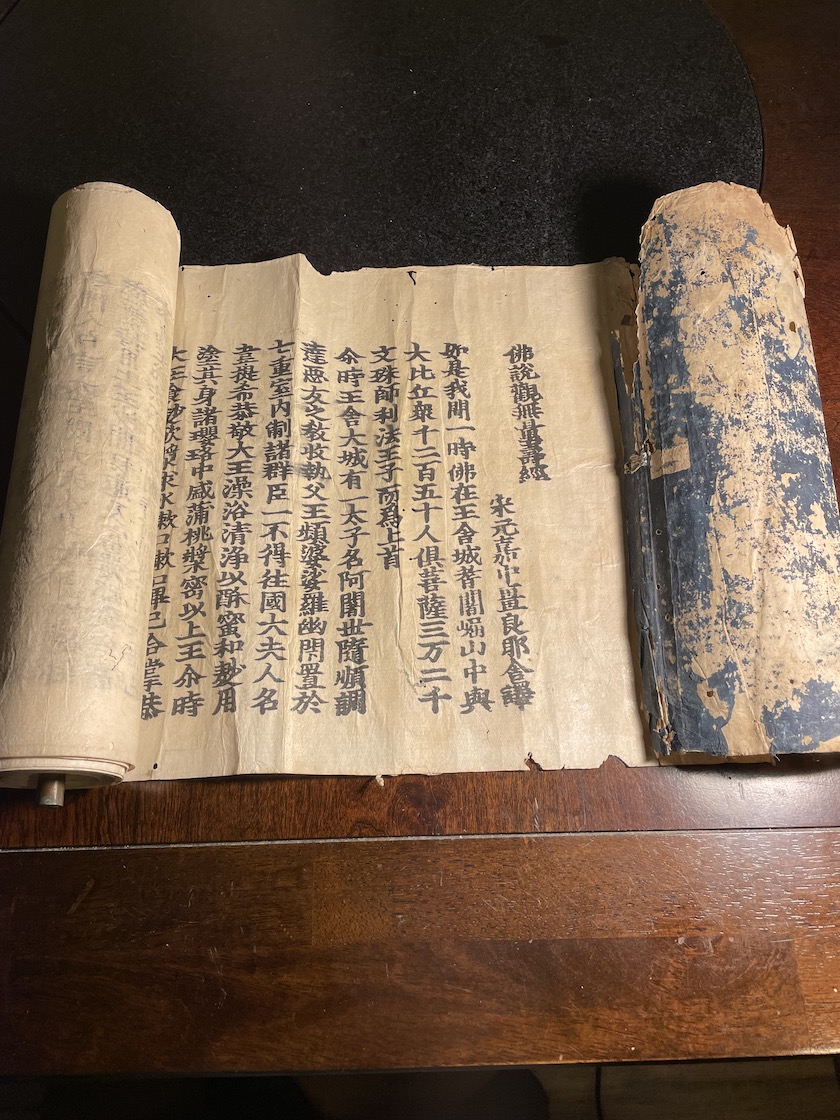 佛說觀無量壽經
宋元嘉中畺良耶舍譯
如是我聞一時佛在王舍城耆闍崛山中與
大比丘衆千二百五十人俱菩薩三万二千
文殊師利法王子而爲上首
尒時王舍大城有一太子名阿闍世隨順調
達惡友之敎收執父王頻婆娑羅幽閇置於
七重室內制諸群臣一不得往國大夫人名
韋提希恭敬大王澡浴清淨以酥蜜和麨用
塗其身諸瓔珞中盛蒲桃漿密以上王尒時
大王食麨飮漿求水漱口漱口畢已合掌恭